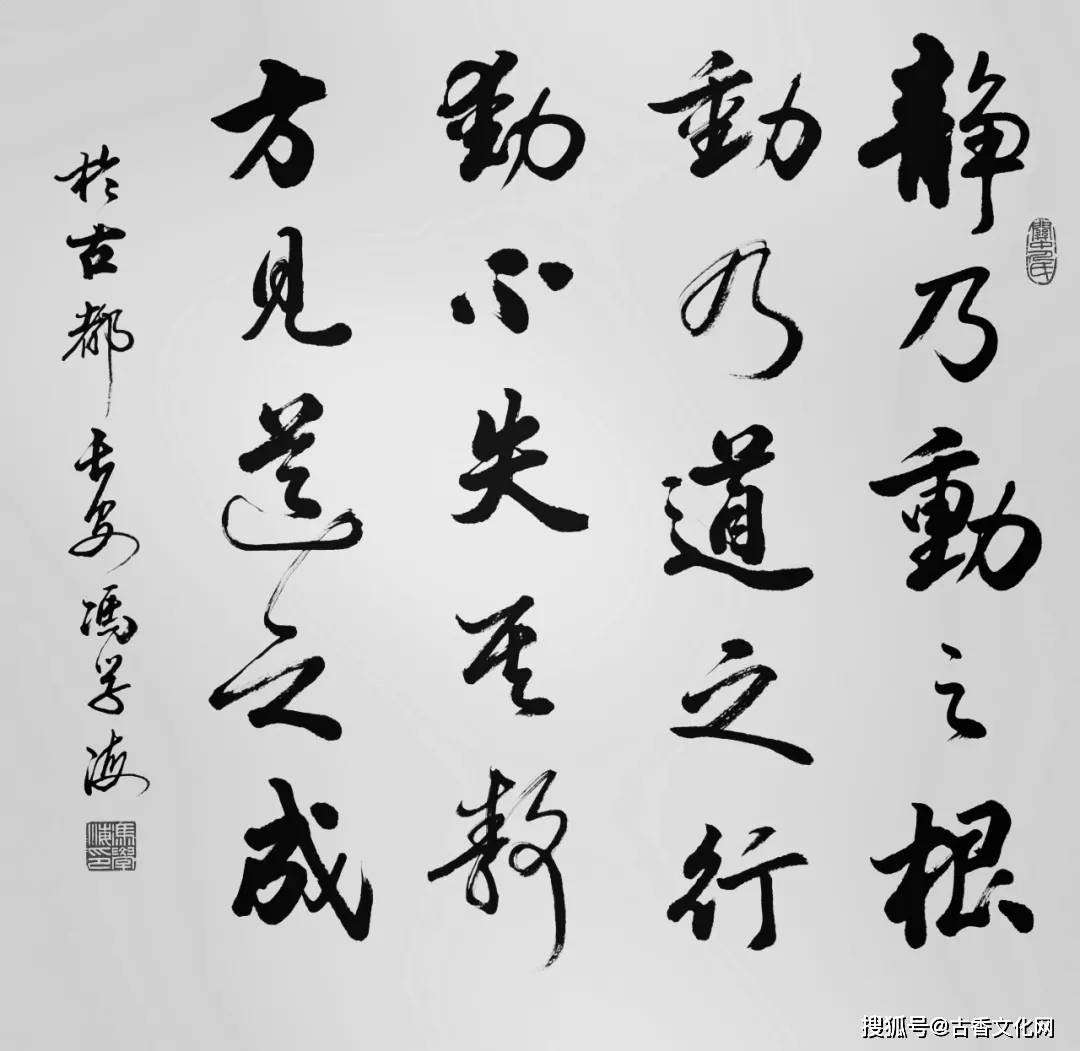 静乃動之根
動乃道之行
動不失其数
方見道之成
於古都長安馮学海
馮學海印
搜狐号@古香文化网